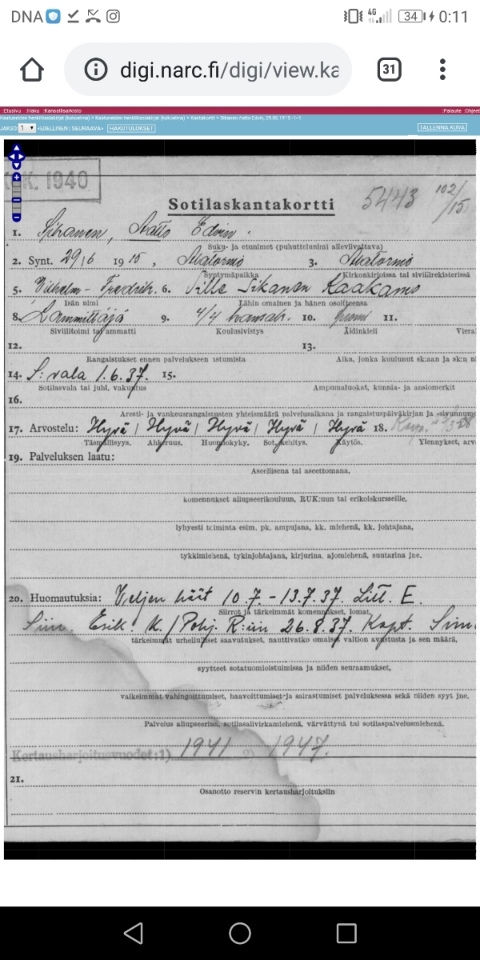 DNA
4G
34
0:11
digi.narc.fi/digi/view.ka
31
TALLENNA KUVA
HAKUTULOKSET
K. 1940
Sotilaskantakortti
5443 102/15
1. Sikanen, Aatto Edvin.
Suku- ja etunimet (puhuttelunimi alleviivattava)
2. Synt. 29/6 1915, Alatornio 3. Alatornio
Syntymäpaikka Kirkonkirjoissa tai siviilirekisterissä
5. Vilhelm-Fredrik. 6. Ville Sikanen Kaakamo
Isän nimi Lähin omainen ja hänen osoitteensa
8. Lämmittäjä 9. 4/4 kansak. 10. suomi 11.
Siviilitoimi tai ammatti Koulusivistys Äidinkieli
12. 13.
Rangaistukset ennen palvelukseen astumista Aika, jonka kuulunut sk:aan ja sk:n
14. S. vala 1.6.37. 15.
Sotilasvala tai juhl. vakuutus Ampumaluokat, kunnia- ja ansiomerkit
16.
Aresti- ja vankeusrangaistusten yhteismäärä palvelusaikana ja rangaistuspäiväkirjan ja
17. Arvostelu: Hyvä / Hyvä / Hyvä / Hyvä / Hyvä 18.
Täsmällisyys. Ahkeruus. Huomiokyky. Sot. kehitys. Käytös. Ylennykset, arvo
19. Palveluksen laatu:
Aseellisena tai aseettomana,
komennukset aliupseerikouluun, RUK:uun tai erikoiskursseille,
lyhyesti toiminta esim. pk. ampujana, kk. miehenä, kk. johtajana,
tykkimiehenä, tykinjohtajana, kirjurina, ajomiehenä, suutarina jne.
20. Huomautuksia: Veljen häät 10.7.-13.7.37. Litt. E.
Siirrot ja tärkeimmät komennukset, lomat,
Siirr. Erill. K./Pohj. R:iin 26.8.37. Kapt. Sim.
tärkeimmät urheilulliset saavutukset, nauttivatko omaiset valtion avustusta ja sen määrä,
syytteet sotatuomioistuimissa ja niiden seuraamukset,
vaikeimmat vahingoittumiset, haavoittumiset ja sairastumiset palveluksessa sekä niiden syyt jne,
Palvelus aliupseerina, sotilasalivirkamiehenä, värvättynä tai sotilaspalvelusmiehenä.
Kertausharjoitusvuodet: 1) 1941 2) 1947.
21.
Osanotto reservin kertausharjoituksiin